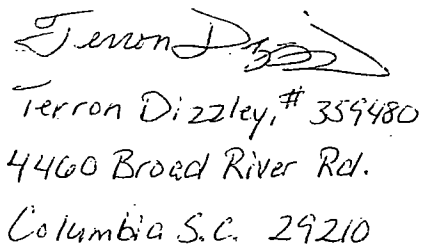 Terron Dizzley
Terron Dizzley, # 359480
4460 Broad River Rd.
Columbia S.C. 29210